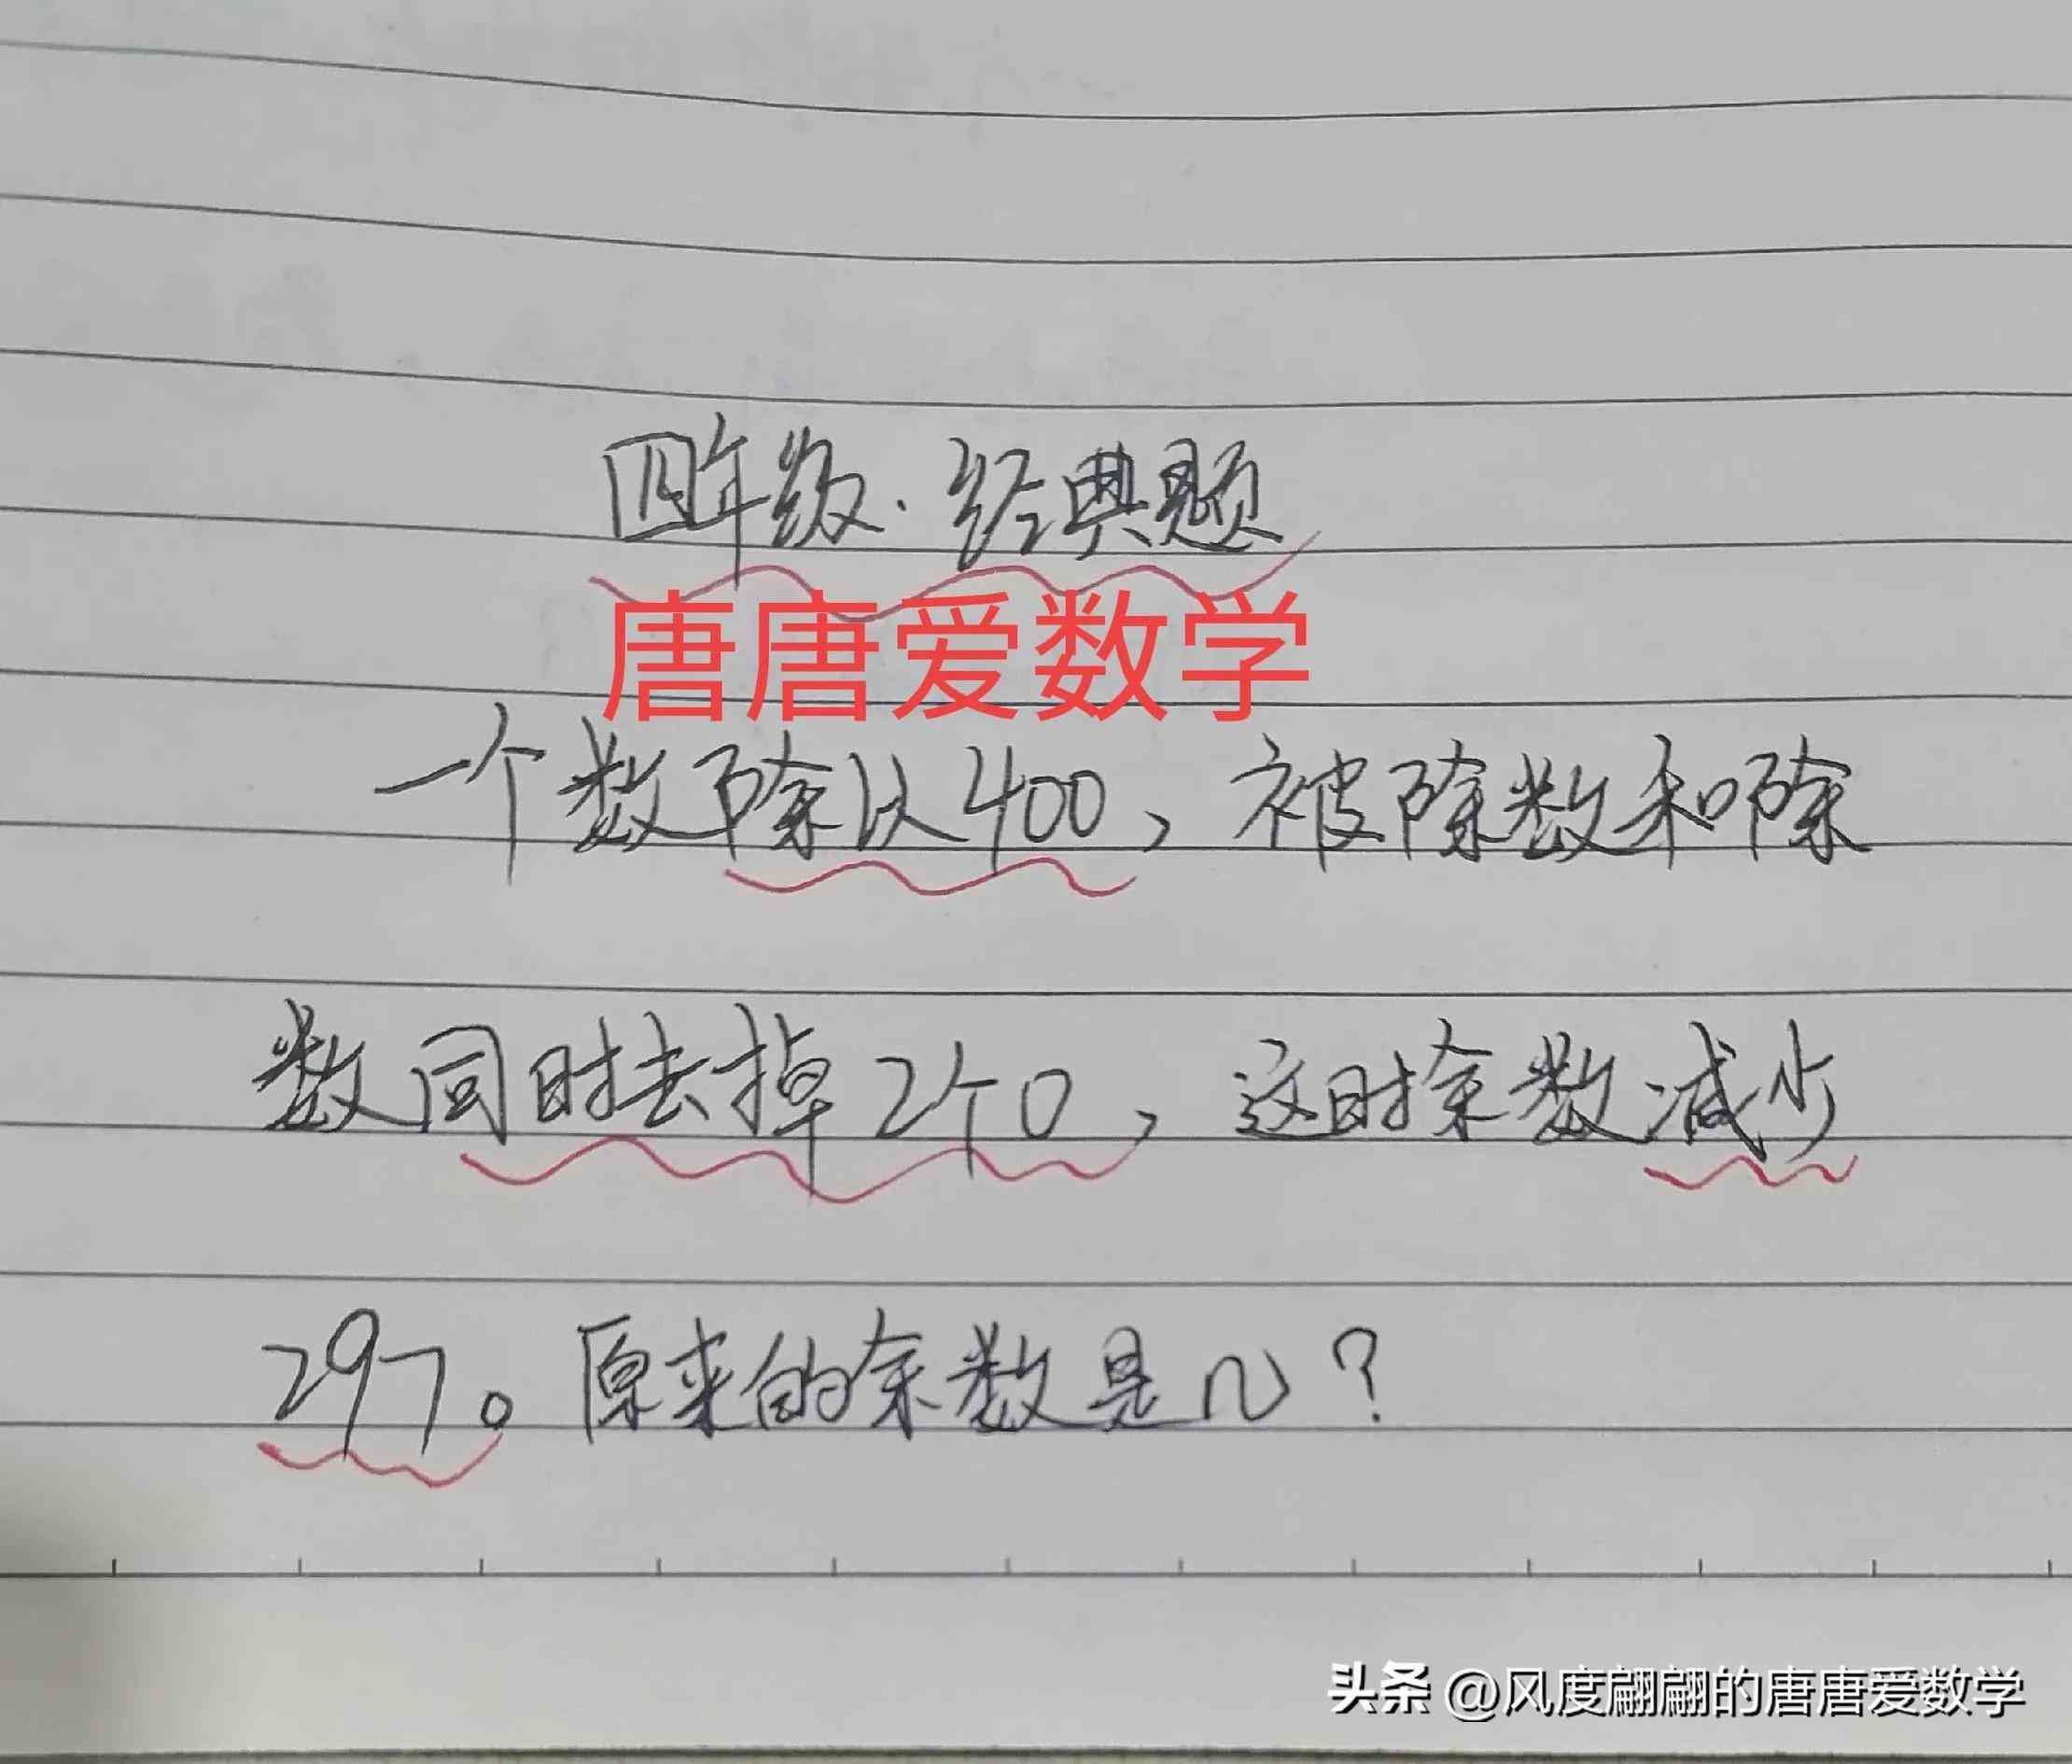 四年级·经典题
唐唐爱数学
一个数除以400，被除数和除
数同时去掉2个0，这时余数减少
297。原来的余数是几？
头条 @风度翩翩的唐唐爱数学